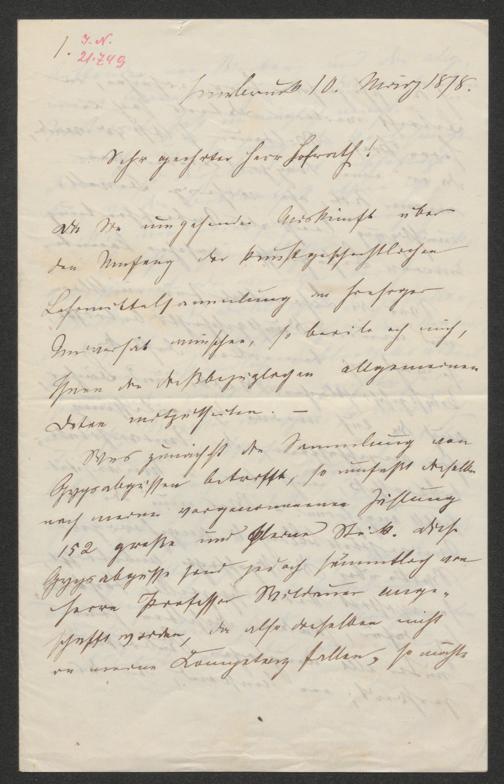 1. I.N.
21.749
Innsbruck 10. März 1878.
Sehr geehrter Herr Hofrath!
Da Sie umgehende Auskunft über
den Umfang der kunstgeschichtlichen
Lehrmittelsammlung der hiesigen
Universität wünschen, so beeile ich mich,
Ihnen die dießbezüglichen allgemeinen
Daten mitzutheilen. —
Was zunächst die Sammlung von
Gypsabgüssen betrifft, so umfaßt dieselbe
nach meiner vorgenommenen Zählung
152 große und kleine Stück. Diese
Gypsabgüsse sind jedoch sämmtlich von
Herrn Professor Wildauer ange-
schafft worden, da also dieselben nicht
in meine Competenz fallen, so möchte